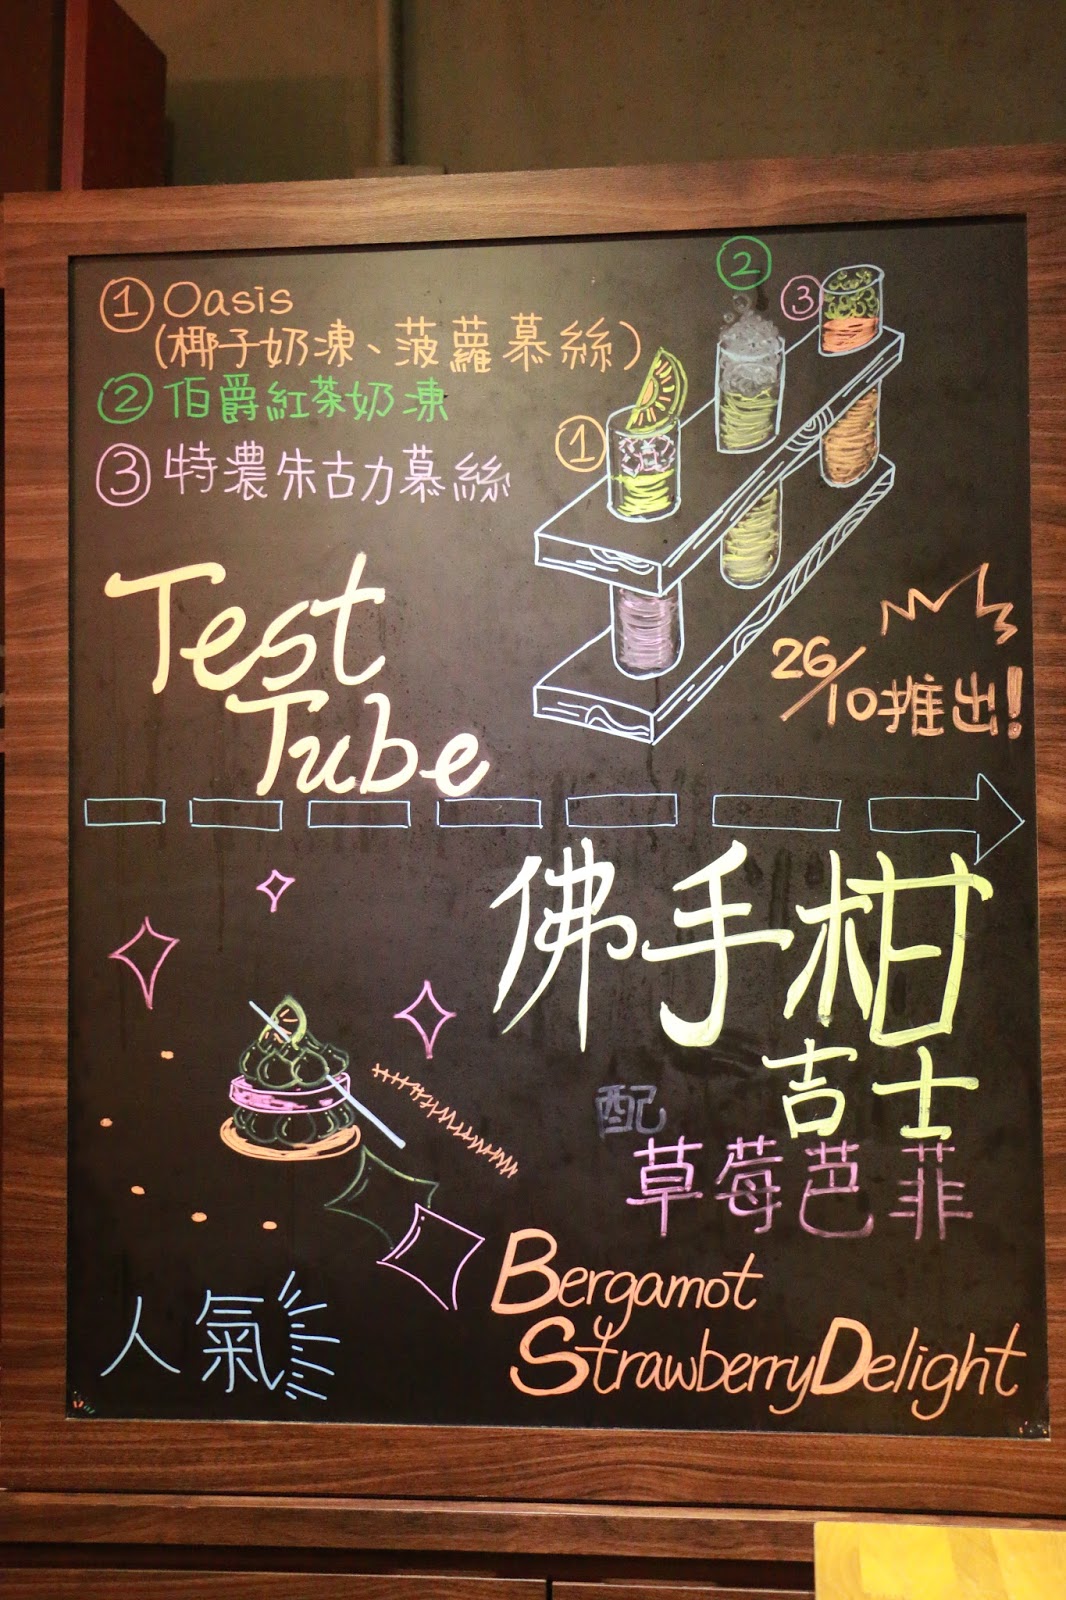 ① Oasis
(椰子奶凍、菠蘿慕絲)
② 伯爵紅茶奶凍
③ 特濃朱古力慕絲
②
③
①
Test
Tube
26/10推出!
佛手柑
吉士
配
草莓芭菲
Bergamot
Strawberry Delight
人氣